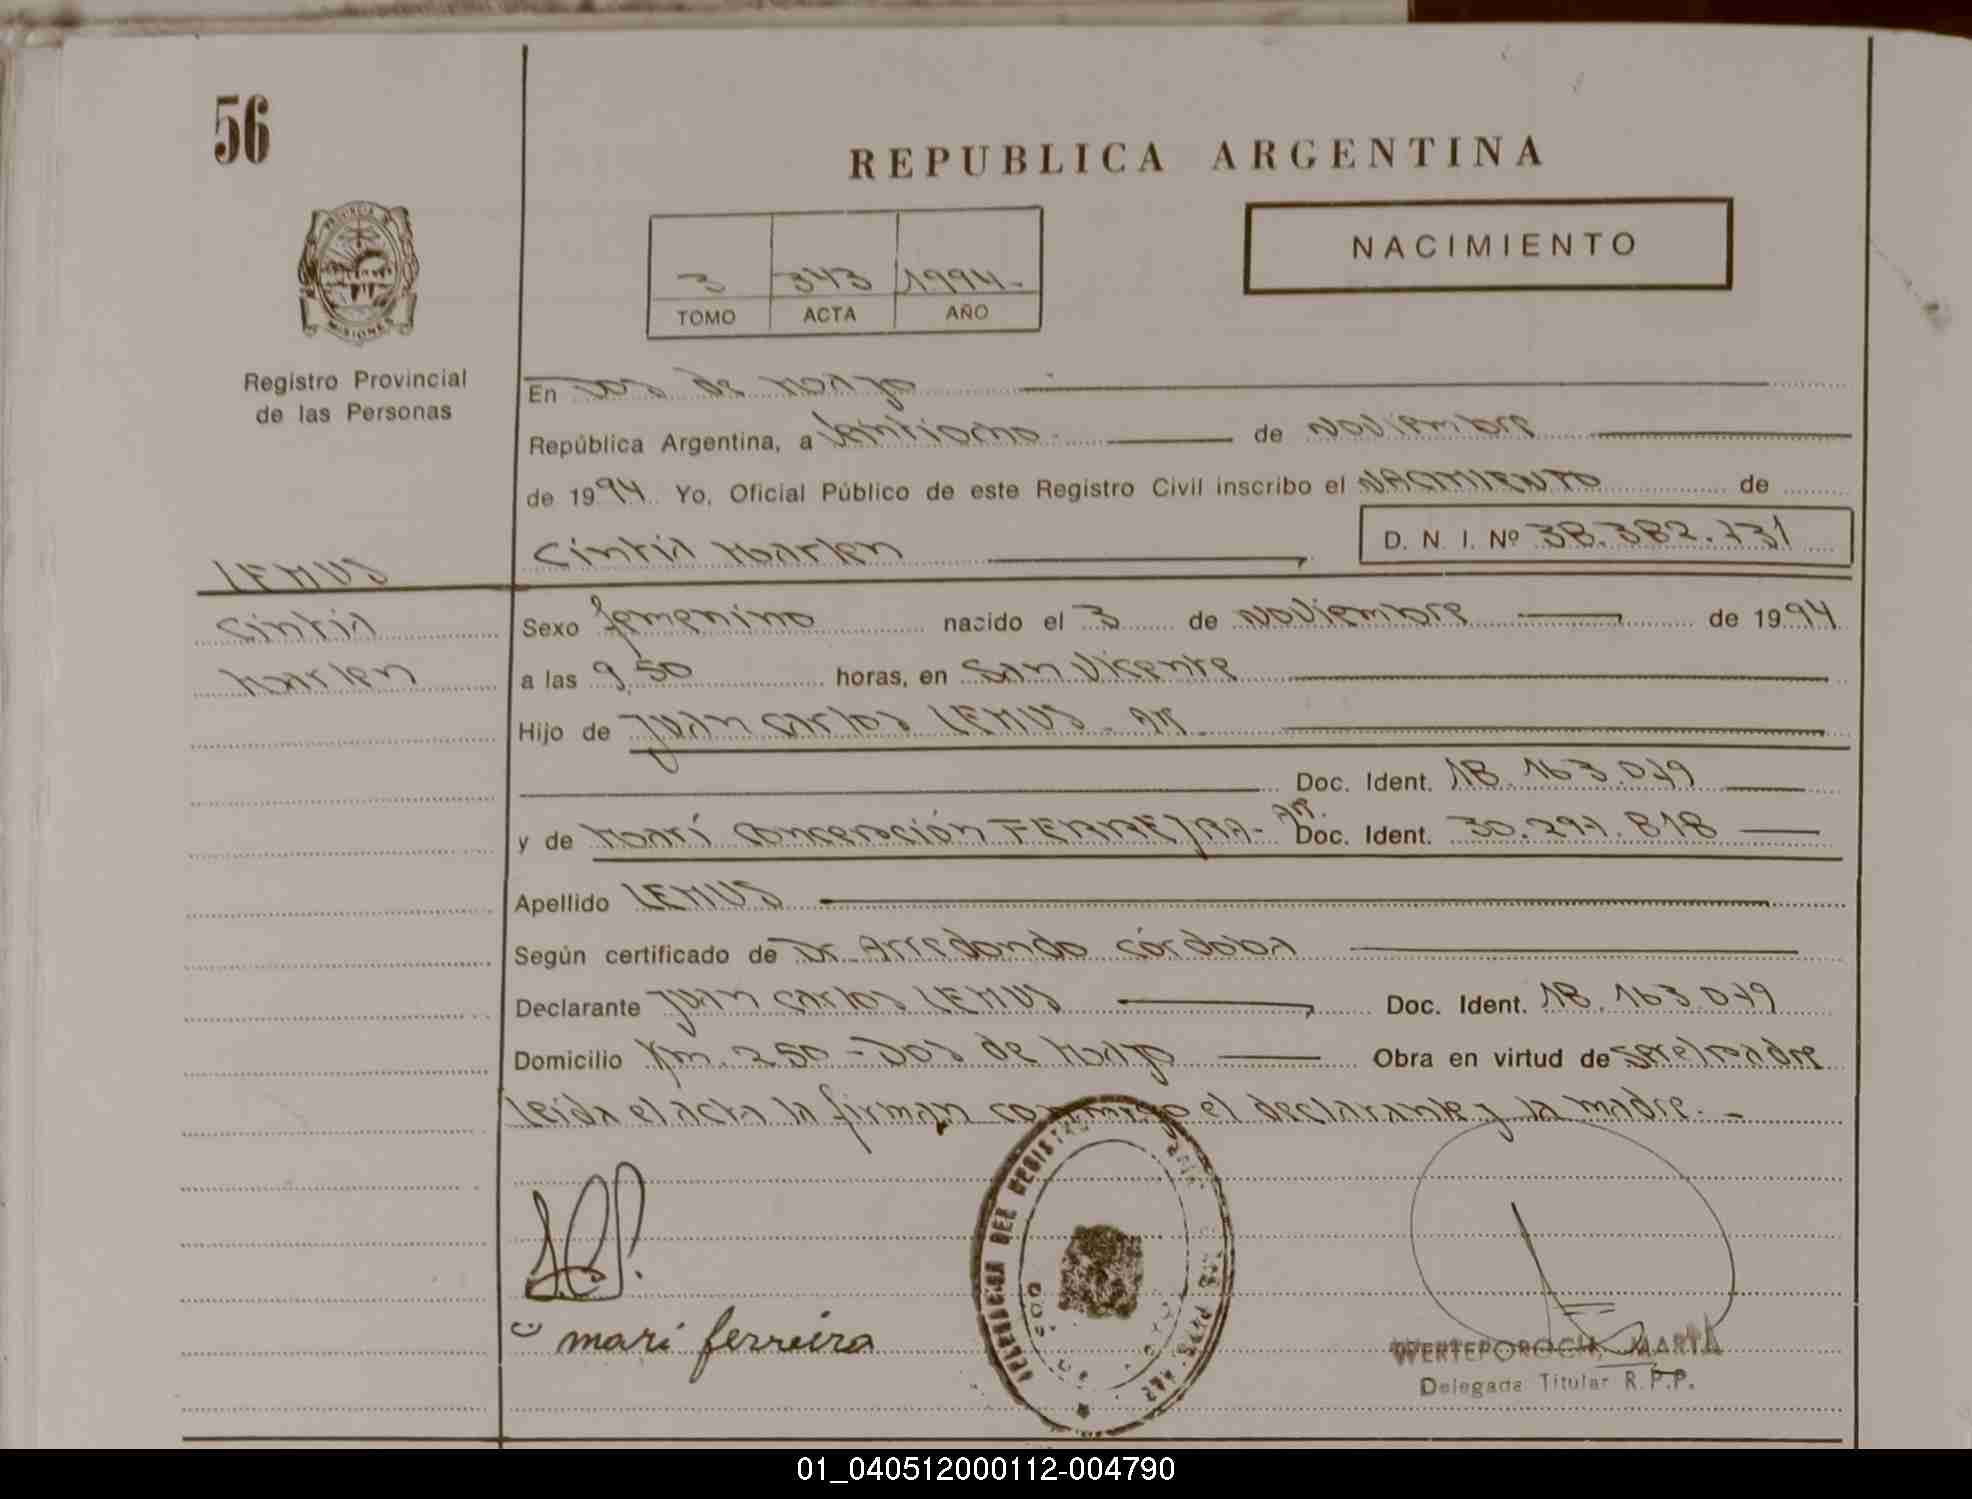 56
REPUBLICA ARGENTINA
PROVINCIA DE
MISIONES
Registro Provincial
de las Personas
3 343 1994.-
TOMO ACTA AÑO
NACIMIENTO
En Dos de Mayo
República Argentina, a Veintiocho de Noviembre
de 1994 Yo, Oficial Público de este Registro Civil inscribo el NACIMIENTO de
Cintia Marlen D. N. I. Nº 38.382.731
LEMUS
Cintia
Marlen
Sexo femenino nacido el 3 de Noviembre de 1994
a las 9,50 horas, en San Vicente
Hijo de Juan Carlos LEMUS - Ar.
Doc. Ident. 18.163.079
y de Marí Concepción FERREIRA - Ar. Doc. Ident. 30.297.818
Apellido LEMUS
Según certificado de Dr. Arredondo Córdoba
Declarante Juan Carlos LEMUS Doc. Ident. 18.163.079
Domicilio Km. 250 - Dos de Mayo Obra en virtud de ser el padre
Leída el acta la firman conmigo el declarante y la madre. -
DEL REGISTRO
mari ferreira
WERTEPOROCH, MARTA
Delegada Titular R.P.P.
01_040512000112-004790